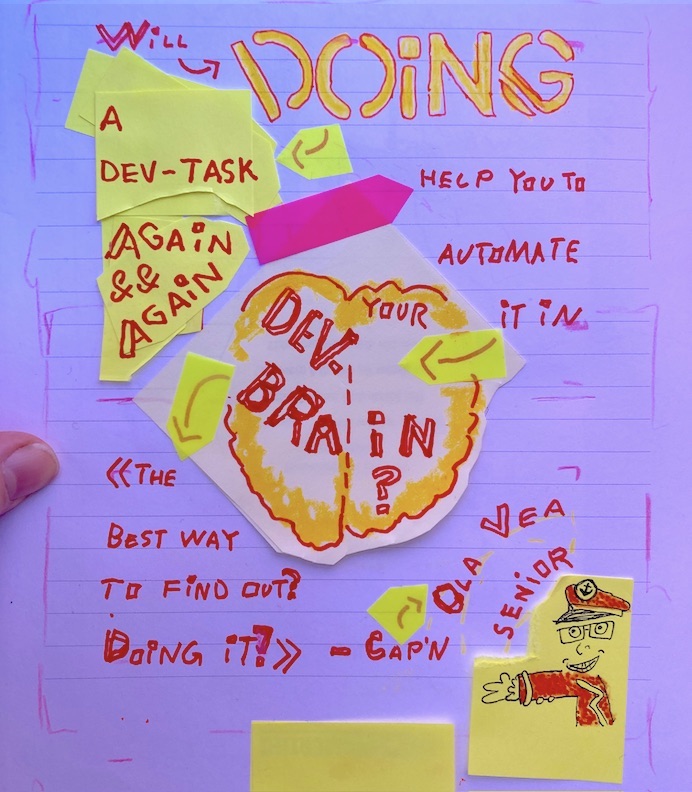 WILL DOING
A
DEV-TASK
AGAIN
&&
AGAIN
HELP YOU TO
AUTOMATE
IT IN
YOUR
DEV.
BRAIN
?
«THE
BEST WAY
TO FIND OUT?
DOING IT?» - CAP'N
OLA VEA
SENIOR